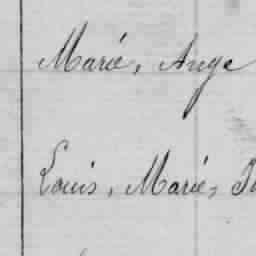 Marie, Ange
Louis, Marie,